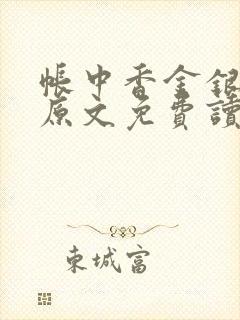 帳中香金銀
原文免費讀
東城富